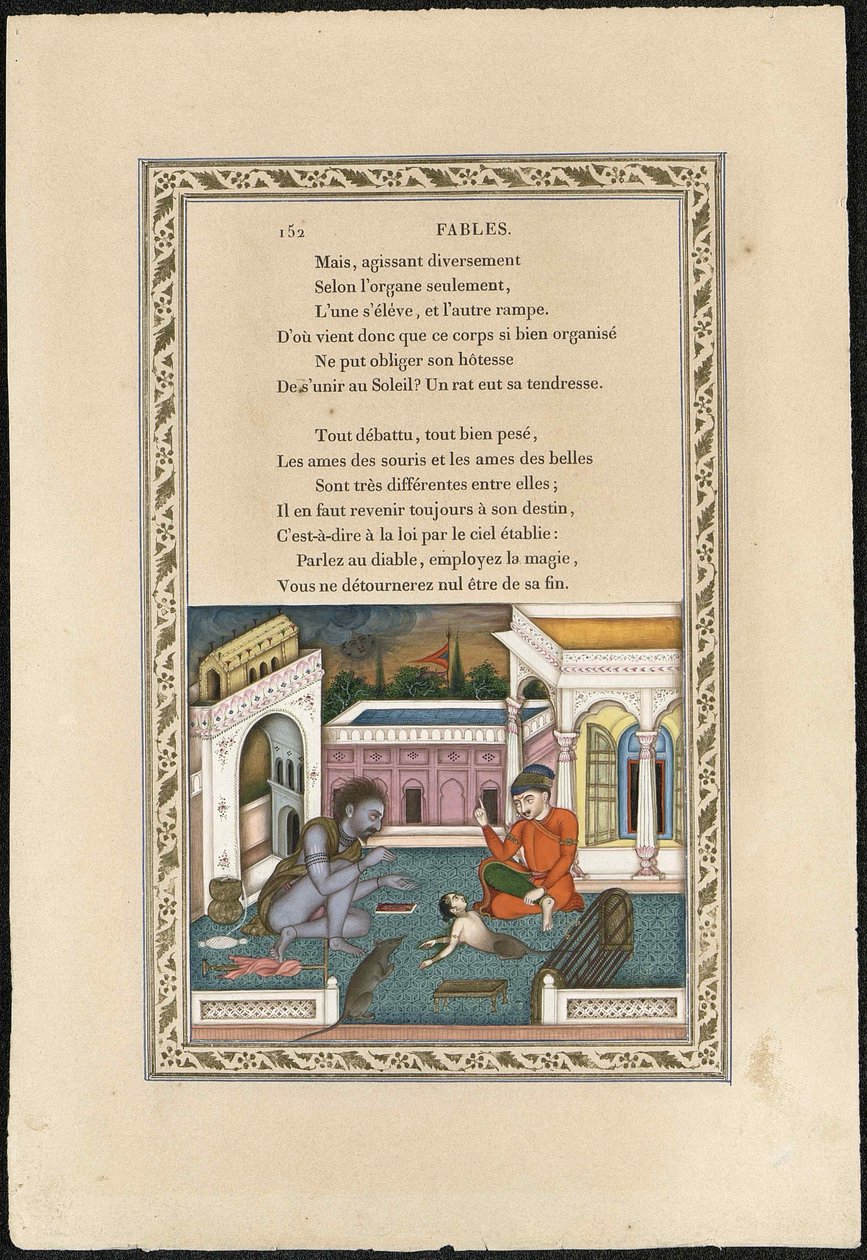 152 FABLES.
Mais, agissant diversement
Selon l'organe seulement,
L'une s'éléve, et l'autre rampe.
D'où vient donc que ce corps si bien organisé
Ne put obliger son hôtesse
De s'unir au Soleil? Un rat eut sa tendresse.
Tout débattu, tout bien pesé,
Les ames des souris et les ames des belles
Sont très différentes entre elles;
Il en faut revenir toujours à son destin,
C'est-à-dire à la loi par le ciel établie:
Parlez au diable, employez la magie,
Vous ne détournerez nul être de sa fin.